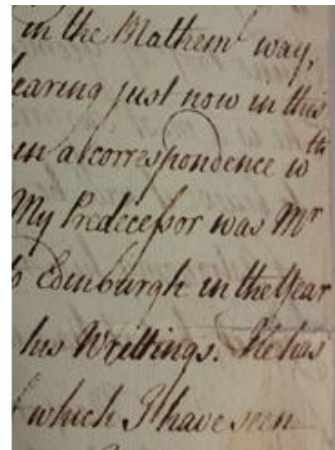 in the Mathem.l way,
earing just now in this
in a correspondence wth
My Predecessor was Mr
Edinburgh in the Year
his Writtings. He has
which I have seen